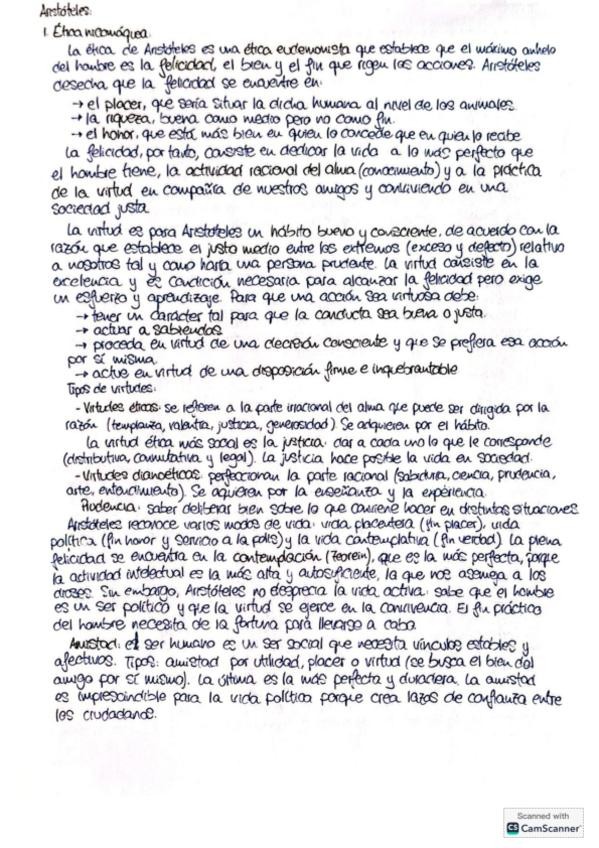 Aristóteles:
1. Ética nicomáquea.
La ética de Aristóteles es una ética eudemonista que establece que el máximo anhelo
del hombre es la felicidad, el bien y el fin que rigen las acciones. Aristóteles
desecha que la felicidad se encuentre en:
→ el placer, que sería situar la dicha humana al nivel de los animales.
→ la riqueza, buena como medio pero no como fin.
→ el honor, que está más bien en quien lo concede que en quien lo recibe
La felicidad, por tanto, consiste en dedicar la vida a lo más perfecto que
el hombre tiene, la actividad racional del alma (conocimiento) y a la práctica
de la virtud en compañía de nuestros amigos y conviviendo en una
sociedad justa
La virtud es para Aristóteles un hábito bueno y consciente, de acuerdo con la
razón que establece el justo medio entre los extremos (exceso y defecto) relativo
a nosotros tal y como haría una persona prudente. La virtud consiste en la
excelencia y es condición necesaria para alcanzar la felicidad pero exige
un esfuerzo y aprendizaje. Para que una acción sea virtuosa debe:
→ tener un carácter tal para que la conducta sea buena o justa.
→ actuar a sabiendas
→ proceda en virtud de una decisión consciente y que se prefiera esa acción
por sí misma.
→ actue en virtud de una disposición firme e inquebrantable
Tipos de virtudes:
- Virtudes éticas: se refieren a la parte irracional del alma que puede ser dirigida por la
razón (templanza, valentía, justicia, generosidad). Se adquieren por el hábito.
La virtud ética más social es la justicia: dar a cada uno lo que le corresponde
(distributiva, conmutativa y legal). La justicia hace posible la vida en sociedad.
- Virtudes dianoéticas: perfeccionan la parte racional (sabiduría, ciencia, prudencia,
arte, entendimiento). Se adquieren por la enseñanza y la experiencia.
Prudencia: saber deliberar bien sobre lo que conviene hacer en distintas situaciones
Aristóteles reconoce varios modos de vida: vida placentera (fin placer), vida
política (fin honor y servicio a la polis) y la vida contemplativa (fin verdad). La plena
felicidad se encuentra en la contemplación (Teorein), que es la más perfecta, porque
la actividad intelectual es la más alta y autosuficiente, la que nos asemeja a los
dioses. Sin embargo, Aristóteles no desprecia la vida activa: sabe que el hombre
es un ser político y que la virtud se ejerce en la convivencia. El fin práctico
del hombre necesita de la fortuna para llevarse a cabo.
Amistad: el ser humano es un ser social que necesita vínculos estables y
afectivos. Tipos: amistad por utilidad, placer o virtud (se busca el bien del
amigo por sí mismo). La última es la más perfecta y duradera. La amistad
es imprescindible para la vida política porque crea lazos de confianza entre
los ciudadanos.
Scanned with
CS CamScanner